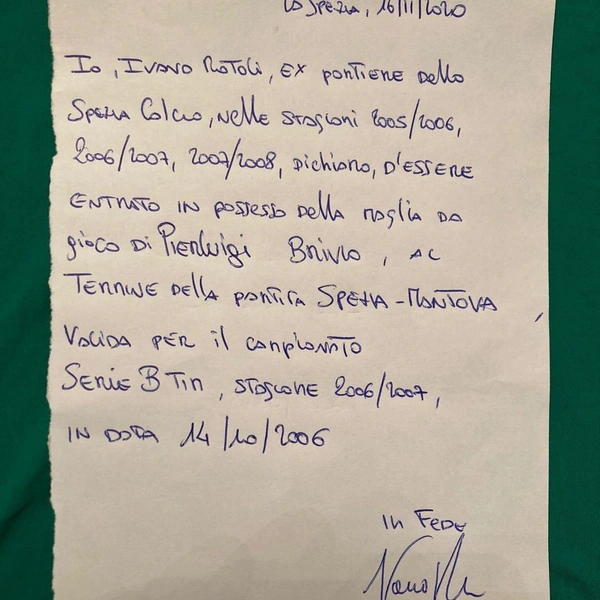 La Spezia, 16/11/2020
Io, Ivano Rotoli, ex portiere dello
Spezia Calcio, nelle stagioni 2005/2006,
2006/2007, 2007/2008, dichiaro, d'essere
entrato in possesso della maglia da
gioco di Pierluigi Brivio, al
termine della partita Spezia-Mantova,
valida per il campionato
Serie B Tim, stagione 2006/2007,
in data 14/10/2006
In Fede